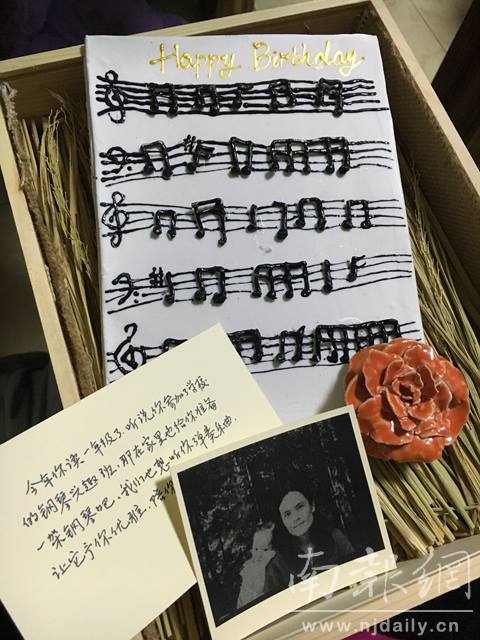 Happy Birthday
今年你读一年级了，听说你参加了学校
的钢琴兴趣班，那在家里也给你准备
一架钢琴吧，我们也想听你弹奏乐曲。
让它予你优雅，陪你
南报网
www.njdaily.cn